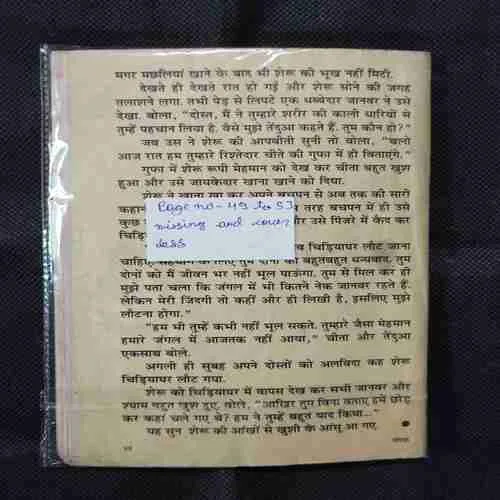 मगर मछलियां खाने के बाद भी शेरू की भूख नहीं मिटी.
देखते ही देखते रात हो गई और शेरू सोने की जगह
तलाशने लगा. तभी पेड़ से लिपटे एक धब्बेदार जानवर ने उसे
देखा. बोला, “दोस्त, मैं ने तुम्हारे शरीर की काली धारियों से
तुम्हें पहचान लिया है. वैसे मुझे तेंदुआ कहते हैं. तुम कौन हो?”
जब उस ने शेरू की आपबीती सुनी तो बोला, “चलो
आज रात हम तुम्हारे रिश्तेदार चीते की गुफा में ही बिताएंगे.”
गुफा में शेरू रूपी मेहमान को देख कर चीता बहुत खुश
हुआ और उसे जायकेदार खाना खाने को दिया.
शेरू ने खाना खा कर अपने बचपन से अब तक की सारी
कहा
तरह बचपन में ही उसे
कुछ
और उसे पिंजरे में कैद कर
चिड़ि
Page no - 49 to 53
missing and cover
less
चिड़ियाघर लौट जाना
चाहिए. सहयोग के लिए तुम दोनों का बहुतबहुत धन्यवाद. तुम
दोनों को मैं जीवन भर नहीं भूल पाऊंगा. तुम से मिल कर ही
मुझे पता चला कि जंगल में भी कितने नेक जानवर रहते हैं.
लेकिन मेरी जिंदगी तो कहीं और ही लिखी है, इसलिए मुझे
लौटना होगा.”
“हम भी तुम्हें कभी नहीं भूल सकते. तुम्हारे जैसा मेहमान
हमारे जंगल में आजतक नहीं आया,” चीता और तेंदुआ
एकसाथ बोले.
अगली ही सुबह अपने दोस्तों को अलविदा कह शेरू
चिड़ियाघर लौट गया.
शेरू को चिड़ियाघर में वापस देख कर सभी जानवर और
श्याम बहुत खुश हुए. बोले, “आखिर तुम बिना बताए हमें छोड़
कर कहां चले गए थे? हम ने तुम्हें बहुत याद किया...”
यह सुन शेरू की आंखों से खुशी के आंसू आ गए.